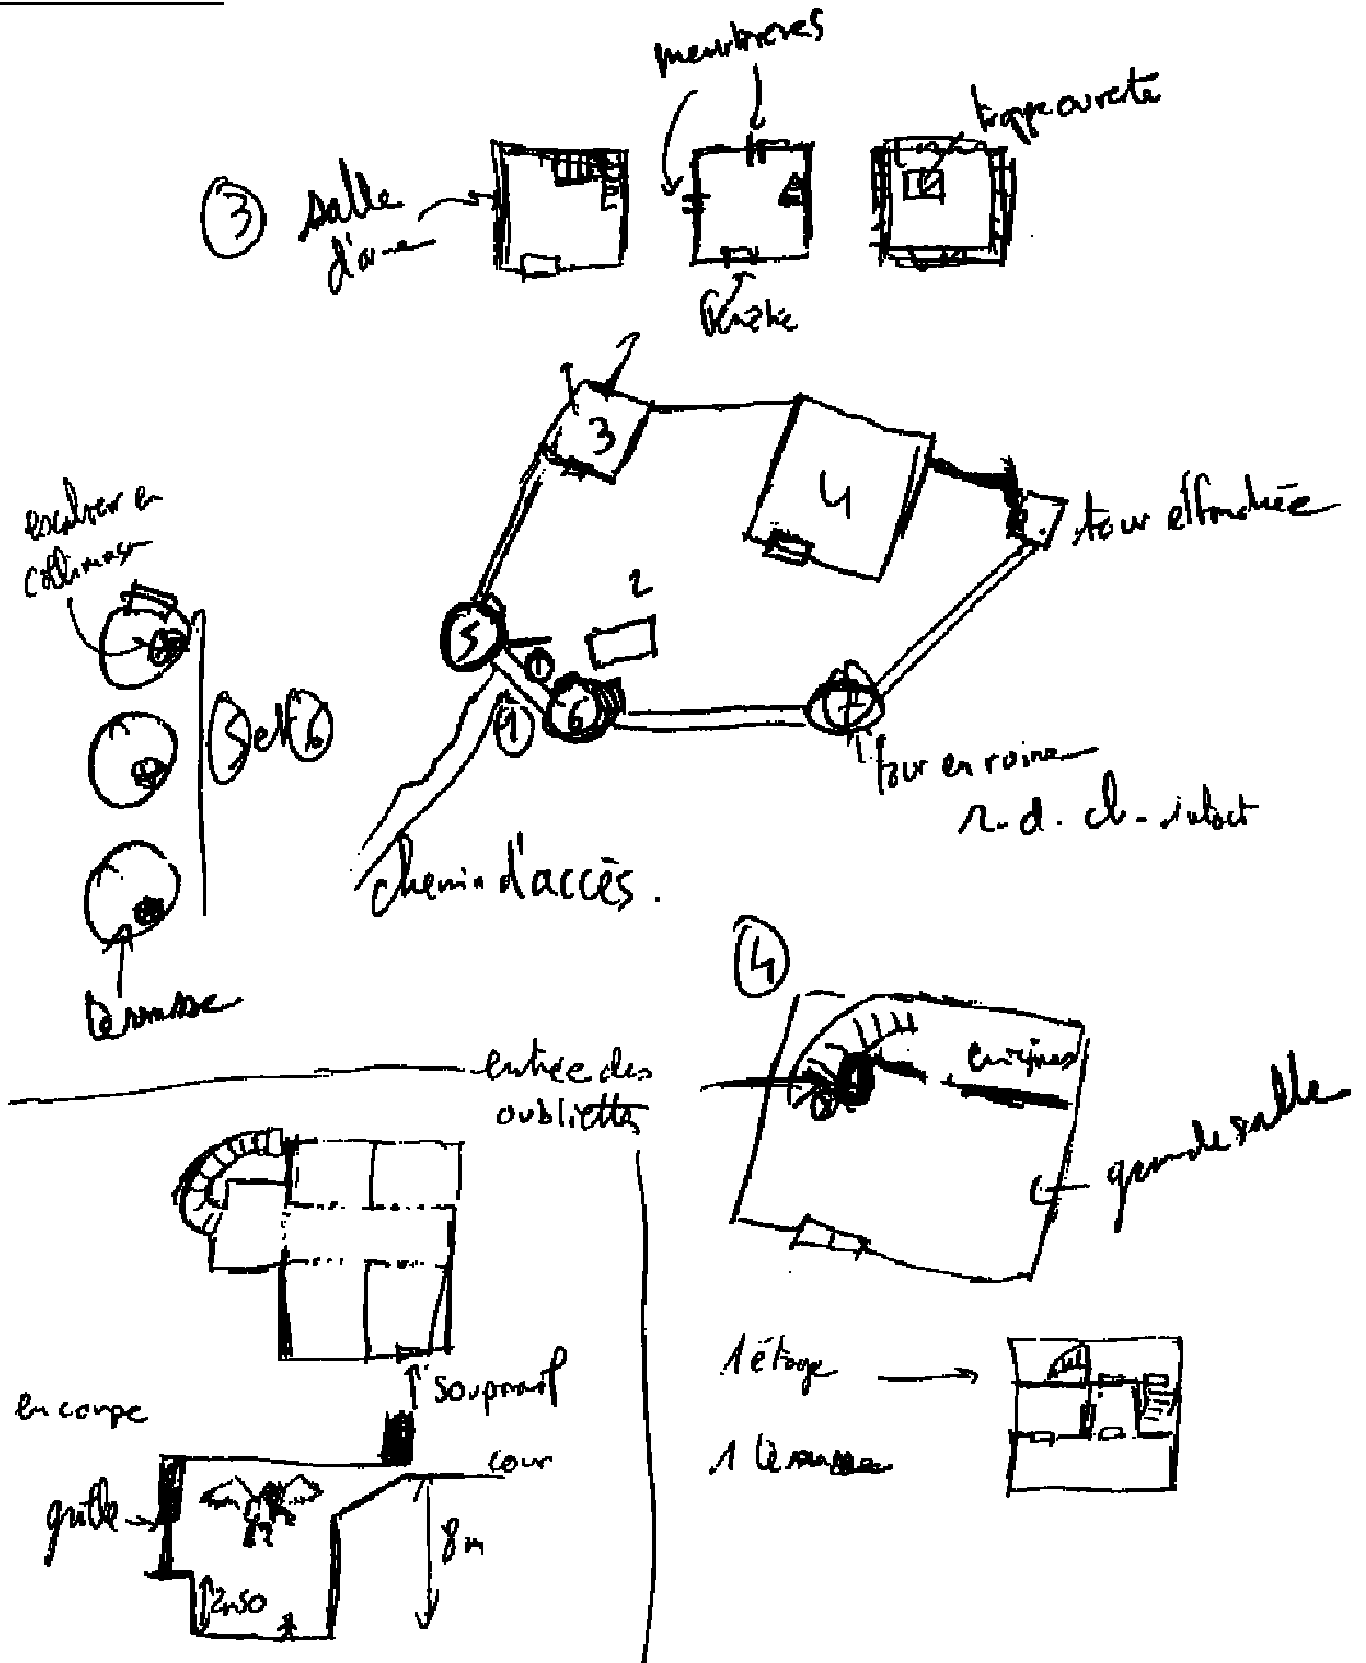 meurtrières
trappe ouverte
3 salle
d'arme
fenêtre
3
4
tour effondrée
escalier en
colimaçon
2
5
1
6
7
5 et 6
9
tour en ruine
r. d. ch. intact
chemin d'accès.
terrasse
4
entrée des
oubliettes
cuisines
grande salle
soupirail
1 étage
en coupe
cour
1 terrasse
grille
8m
2m50